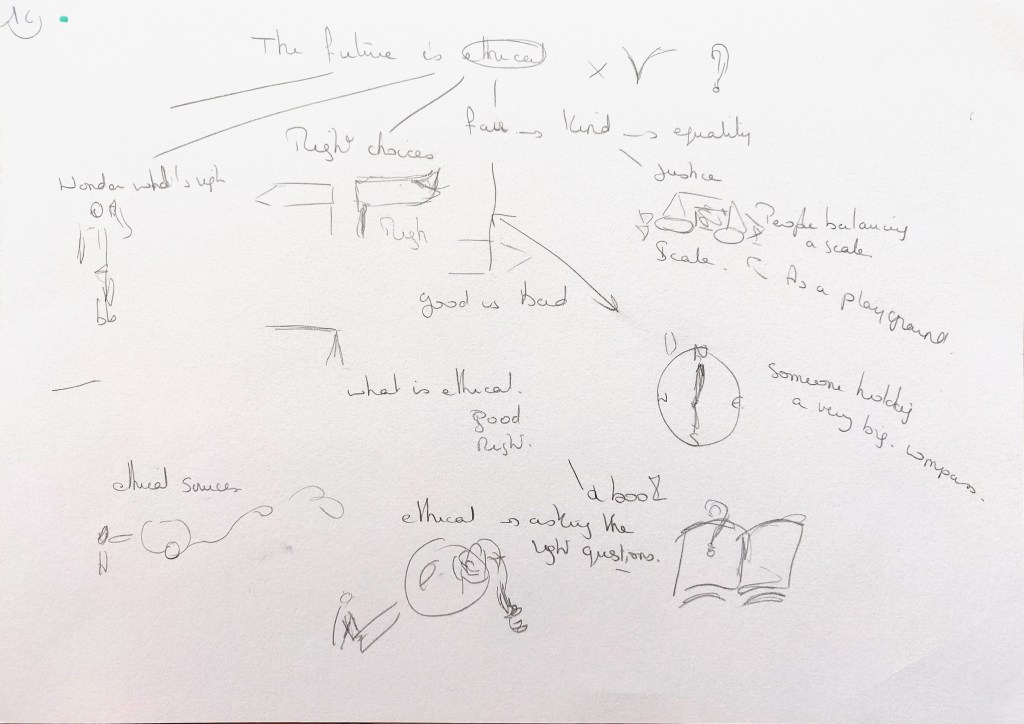 The future is ethical x ?
fair → Kind → equality
Right choices
Justice
Wonder what's right
Righ
People balancing
a scale
Scale.
As a playground
good vs bad
N
W
E
someone holding
a very big compass.
what is ethical.
good
Right.
ethical sources
a book
ethical is asking the
right questions.
?